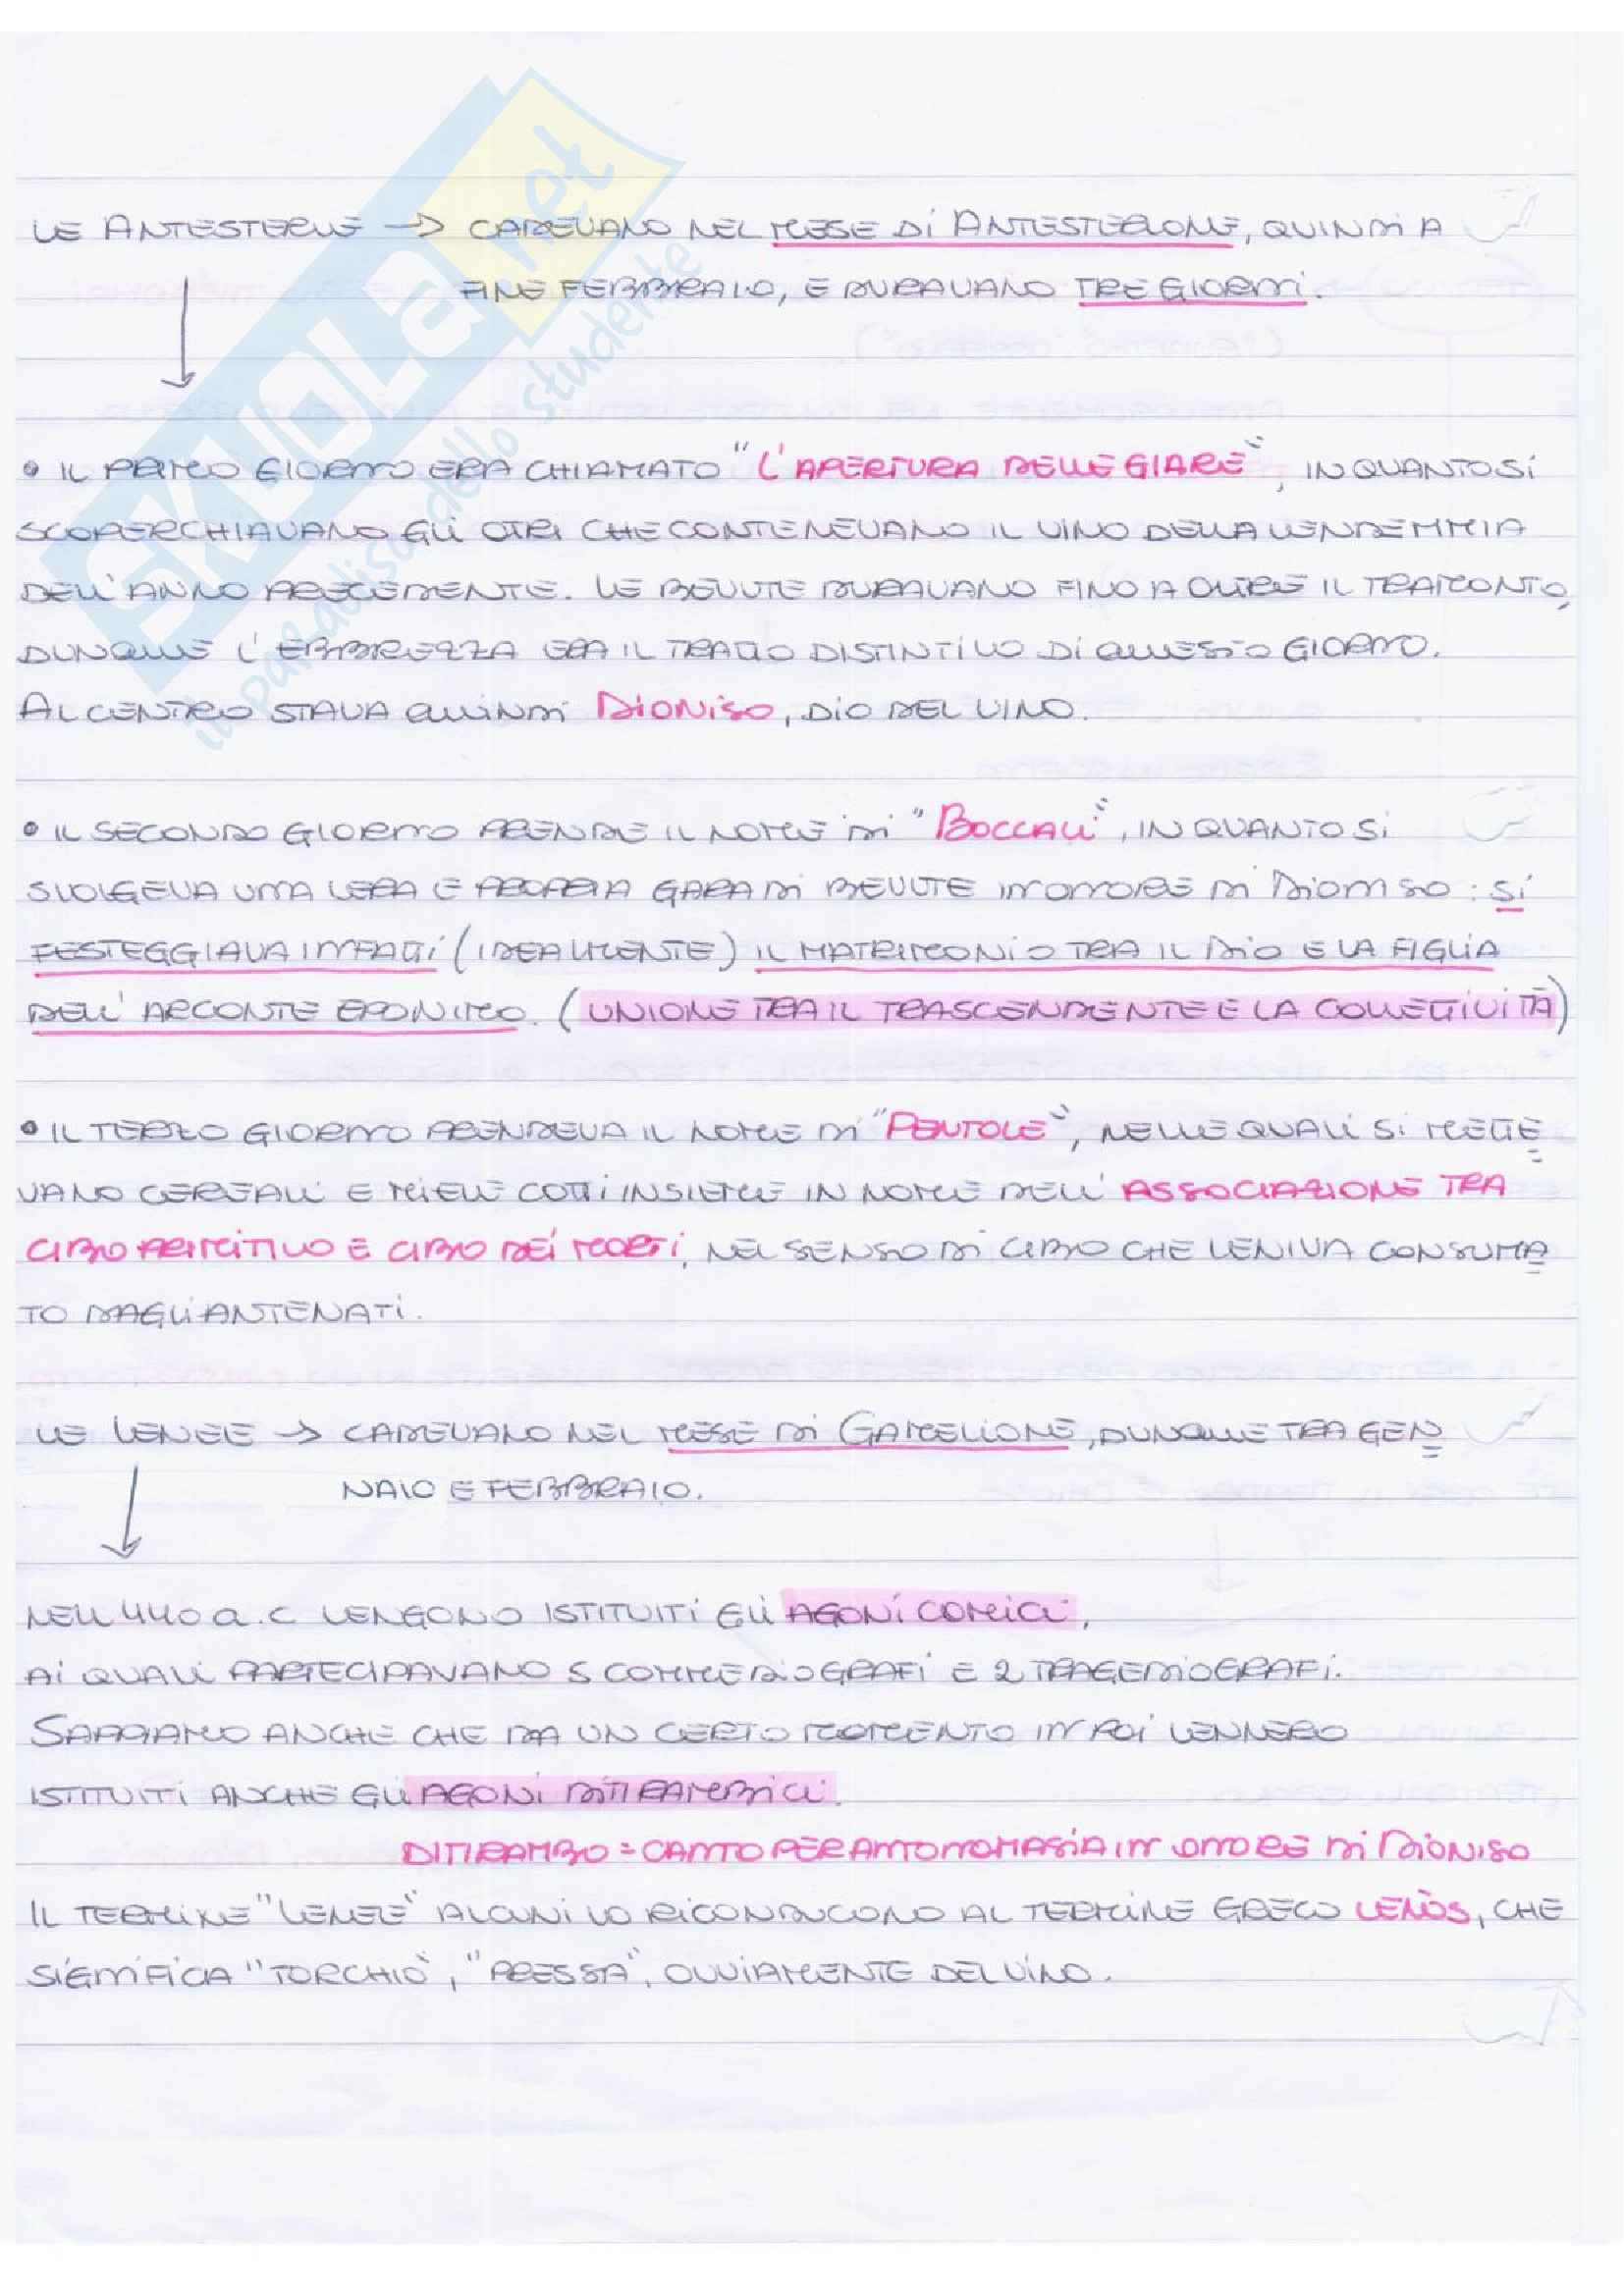 LE ANTESTERIE → CADEVANO NEL MESE DI ANTESTERIONE, QUINDI A
FINE FEBBRAIO, E DURAVANO TRE GIORNI.
• IL PRIMO GIORNO ERA CHIAMATO "L'APERTURA DELLE GIARE", IN QUANTO SI
SCOPERCHIAVANO GLI OTRI CHE CONTENEVANO IL VINO DELLA VENDEMMIA
DELL'ANNO PRECEDENTE. LE BEVUTE DURAVANO FINO A OLTRE IL TRAMONTO,
DUNQUE L'EBBREZZA ERA IL TRATTO DISTINTIVO DI QUESTO GIORNO.
AL CENTRO STAVA QUINDI DIONISO, DIO DEL VINO.
• IL SECONDO GIORNO PRENDE IL NOME DI "BOCCALI", IN QUANTO SI
SVOLGEVA UNA VERA E PROPRIA GARA DI BEVUTE IN ONORE DI DIONISO: SI
FESTEGGIAVA INFATTI (IDEALMENTE) IL MATRIMONIO TRA IL DIO E LA FIGLIA
DELL'ARCONTE EPONIMO. (UNIONE TRA IL TRASCENDENTE E LA COLLETTIVITÀ)
• IL TERZO GIORNO PRENDEVA IL NOME DI "PENTOLE", NELLE QUALI SI METTE
VANO CEREALI E MIELE COTTI INSIEME IN NOME DELL'ASSOCIAZIONE TRA
CIBO PRIMITIVO E CIBO DEI MORTI, NEL SENSO DI CIBO CHE VENIVA CONSUMA
TO DAGLI ANTENATI.
LE LENEE → CADEVANO NEL MESE DI GAMELIONE, DUNQUE TRA GEN
NAIO E FEBBRAIO.
NELL 440 a.C VENGONO ISTITUITI GLI AGONI COMICI,
AI QUALI PARTECIPAVANO 5 COMMEDIOGRAFI E 2 TRAGEDIOGRAFI.
SAPPIAMO ANCHE CHE DA UN CERTO MOMENTO IN POI VENNERO
ISTITUITI ANCHE GLI AGONI DITIRAMBICI.
DITIRAMBO = CANTO PER ANTONOMASIA IN ONORE DI DIONISO
IL TERMINE "LENEE" ALCUNI LO RICONDUCONO AL TERMINE GRECO LENÒS, CHE
SIGNIFICA "TORCHIO", "PRESSA", OVVIAMENTE DEL VINO.
SKUOLA.net
il paradiso dello studente